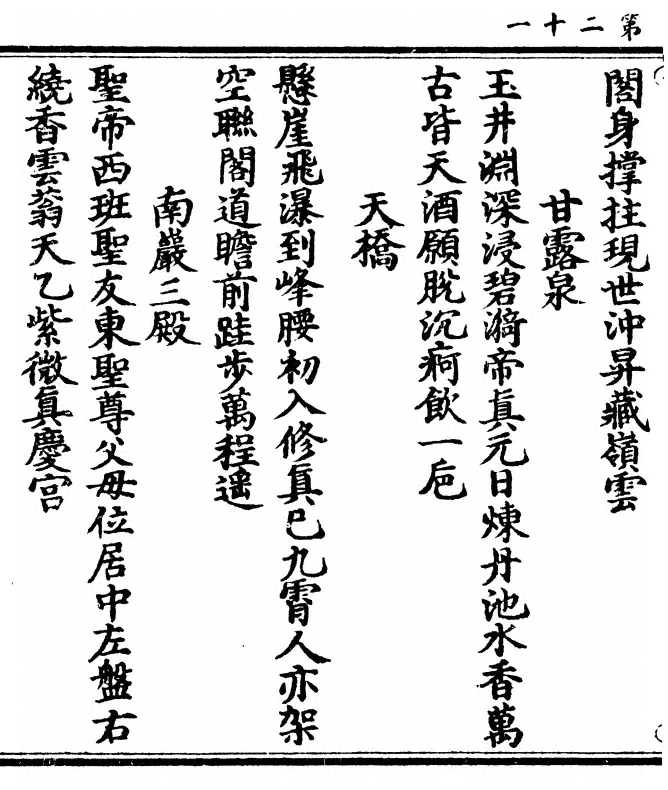 第二十一
閤身撑拄現世沖昇藏嶺雲
甘露泉
玉井淵深浸碧漪帝真元日煉丹池水香萬
古皆天酒願脫沉痾飲一卮
天橋
懸崖飛瀑到峰腰初入修真已九霄人亦架
空聯閣道瞻前跬步萬程遙
南巖三殿
聖帝西班聖友東聖尊父母位居中左盤右
繞香雲蓊天乙紫微真慶宮